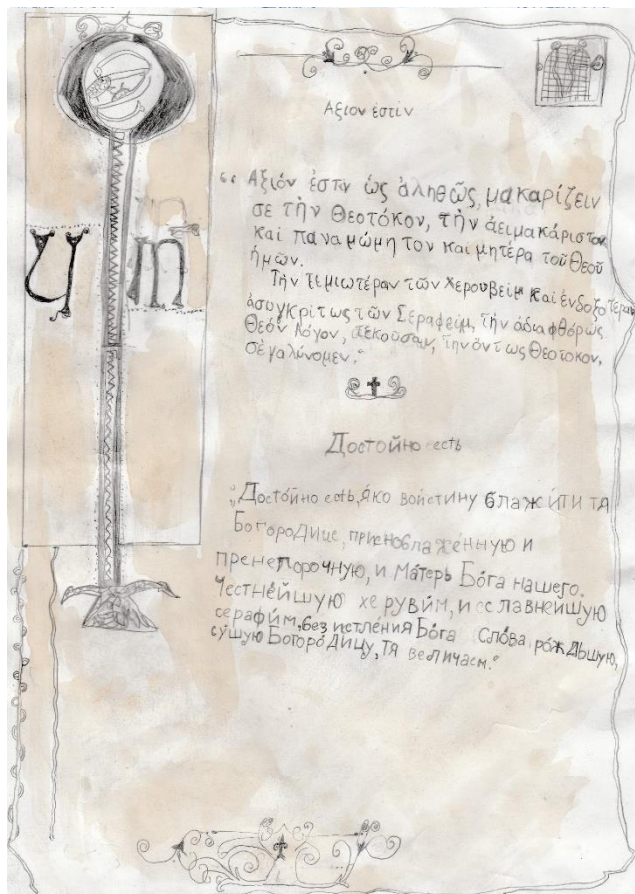 Αξιον ἐστίν
“ Αξιόν ἐστιν ὡς ἀληθῶς, μακαρίζειν
σε τὴν Θεοτόκον, τὴν ἀειμακάριστον
καὶ παναμώμητον καὶ μητέρα τοῦ Θεοῦ
ἡμῶν.
Τὴν τεμιωτέραν τῶν Χερουβείμ καὶ ἐνδοξοτέραν
ἀσυγκρίτως τῶν Σεραφείμ, τὴν ἀδιαφθόρως
Θεόν Λόγον, τεκοῦσαν, τὴν ὄντως Θεοτοκον,
σέ γαλύνομεν.“
Достойно есть
„Досто́йно есть, я́ко вои́стину блажи́ти тя
Богородице, присноблаже́нную и
пренепорочную, и Ма́терь Бо́га нашего.
Честне́йшую херуви́м, и сславнейшую
серафи́м, без истле́ния Бо́га Сло́ва ро́ждьшую,
су́щую Богородицу, тя величаем.“